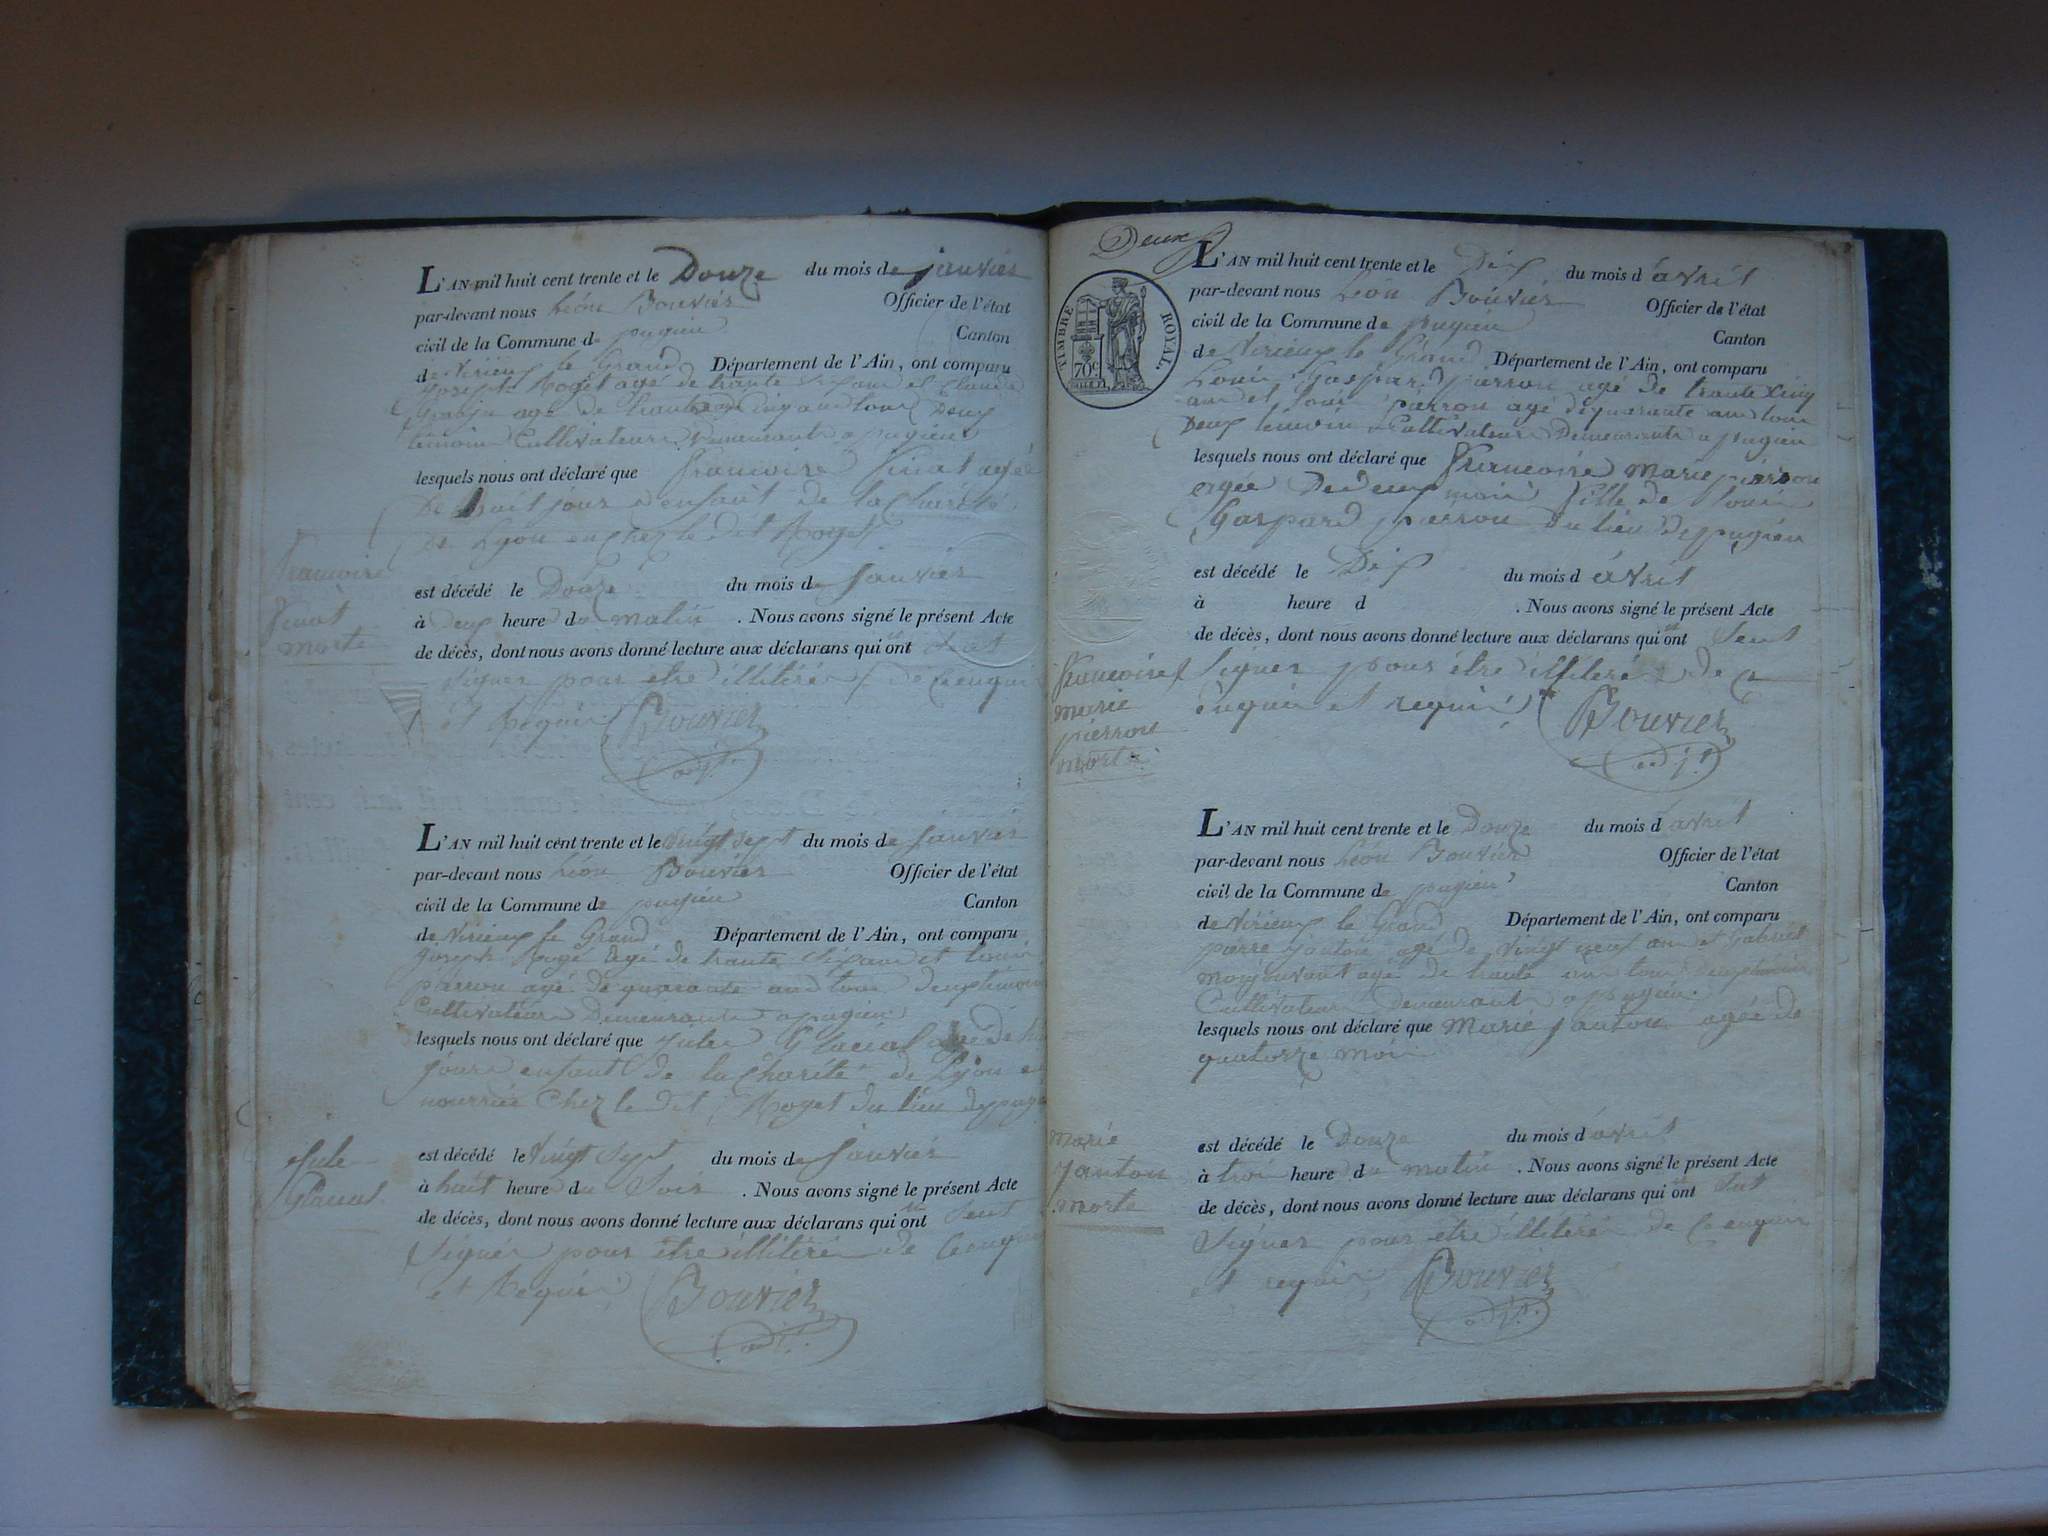 L'AN mil huit cent trente et le Douze du mois de janvier
par-devant nous Léon Bouvier Officier de l'état
civil de la Commune de pugieu Canton
de Virieux le Grand Département de l'Ain, ont comparu
Joseph Roget agé de trante ans et Claude
agé de trante cinq ans tous Deux
temoins Cultivateurs Demeurants a pugieu
lesquels nous ont déclaré que francoise agée
De huit jours enfant de la Charité
De Lyon en chez le dit Roget
francoise
morte
est décédé le Douze du mois de Janvier
à Deux heure du matin . Nous avons signé le présent Acte
de décès, dont nous avons donné lecture aux déclarans qui ont
signer pour etre illitérés de ce enquis
et Requis Bouvier
adjt.
L'AN mil huit cent trente et le vingt sept du mois de Janvier
par-devant nous Léon Bouvier Officier de l'état
civil de la Commune de pugieu Canton
de Virieux le Grand Département de l'Ain, ont comparu
Joseph Rogé agé de trante ans et Louis
pierron agé de quarante ans tous Deux temoins
Cultivateurs Demeurants a pugieu
lesquels nous ont déclaré que Jules Glacial agé de
jours enfant de la Charité de Lyon en
nourrice chez le dit Roget du lieu de
Jule
Glacial
est décédé le vingt sept du mois de Janvier
à huit heure du Soir . Nous avons signé le présent Acte
de décès, dont nous avons donné lecture aux déclarans qui ont
Signer pour etre illitérés de ce
et Requis Bouvier
adjt.
Deux
TIMBRE ROYAL
70c
L'AN mil huit cent trente et le Dix du mois d avril
par-devant nous Léon Bouvier Officier de l'état
civil de la Commune de pugieu Canton
de Virieux le Grand Département de l'Ain, ont comparu
Louis Gaspard pierron agé de trante cinq
ans et Louis pierron agé de quarante ans tous
Deux temoins Cultivateurs Demeurants a pugieu
lesquels nous ont déclaré que francoise marie pierron
agée De deux mois fille de Louis
Gaspard pierron du lieu de pugieu
est décédé le Dix du mois d avril
à heure d . Nous avons signé le présent Acte
de décès, dont nous avons donné lecture aux déclarans qui ont
francoise
marie
pierron
morte
signer pour étre illiterés de ce
enquis et requis Bouvier
adjt.
L'AN mil huit cent trente et le Douze du mois d avril
par-devant nous Léon Bouvier Officier de l'état
civil de la Commune de pugieu Canton
de Virieux le Grand Département de l'Ain, ont comparu
pierre Janton agé de vingt neuf ans et Gabriel
agé de trante ans tous
Cultivateurs Demeurants a pugieu
lesquels nous ont déclaré que Marie Janton agée de
quatorze mois
Marie
Janton
morte
est décédé le Douze du mois d avril
à troi heure du matin . Nous avons signé le présent Acte
de décès, dont nous avons donné lecture aux déclarans qui ont
Signer pour etre illitérés de ce enquis
et requis Bouvier
adjt.